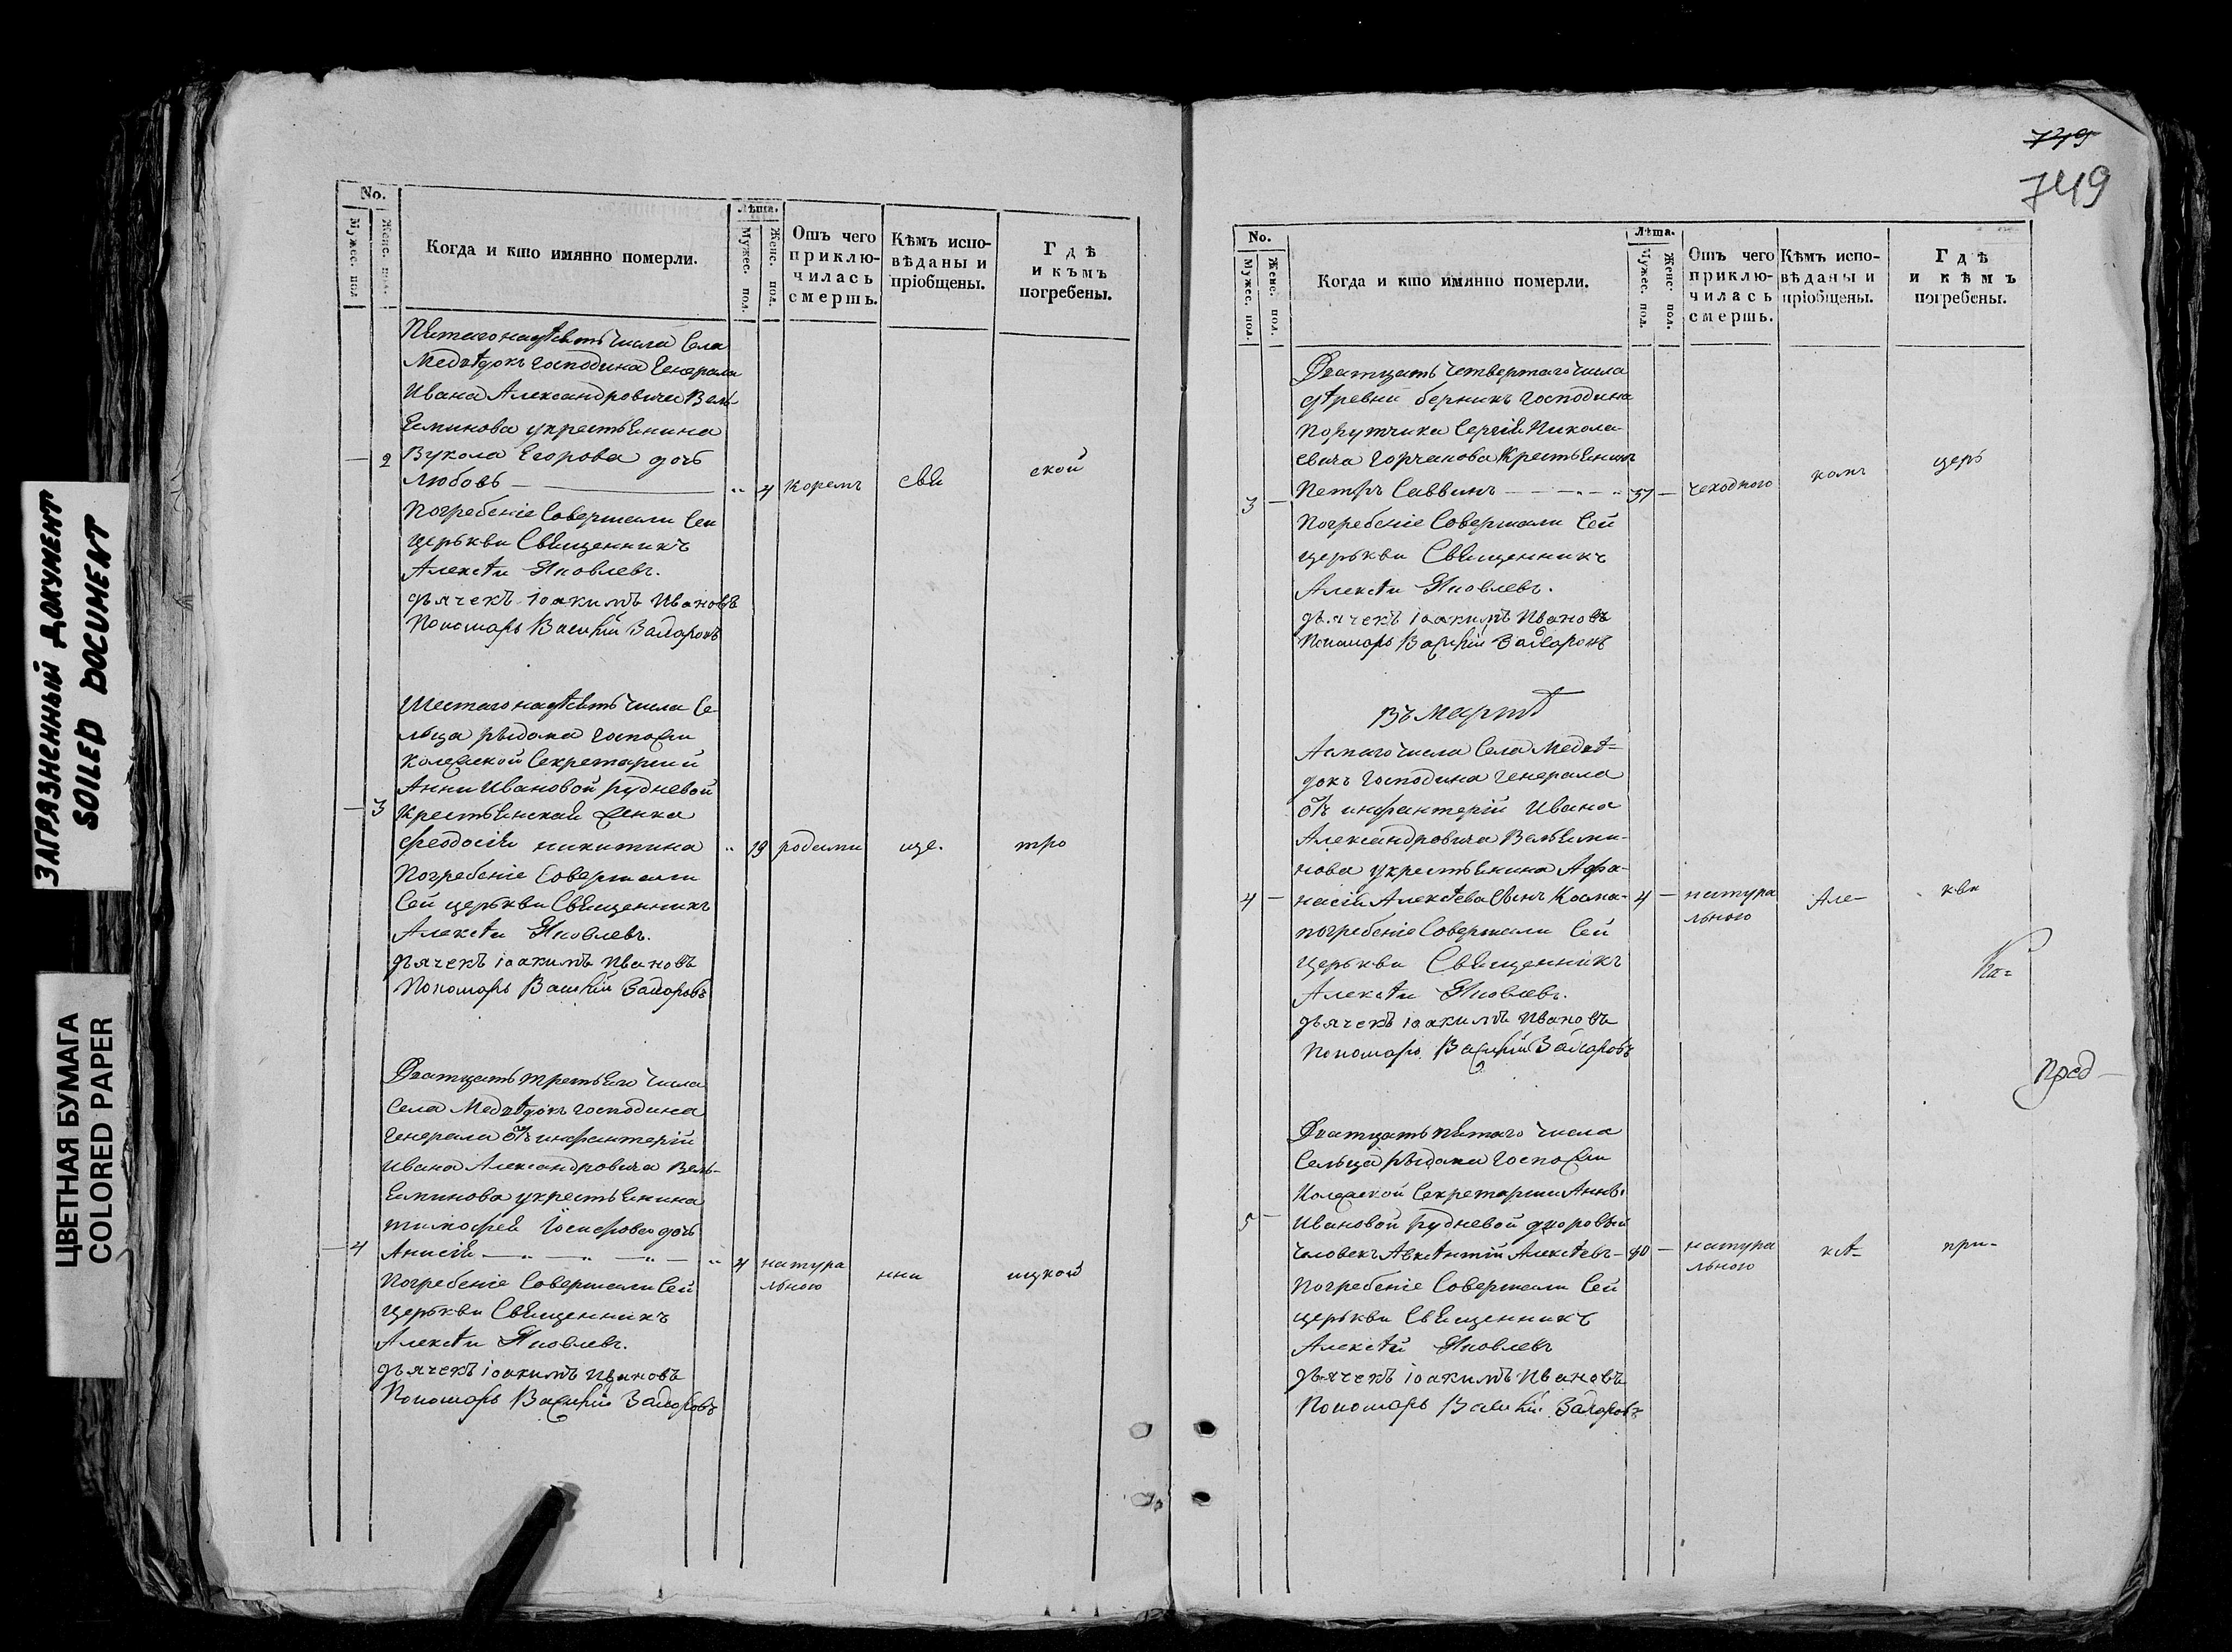 ЗАГРЯЗНЕННЫЙ ДОКУМЕНТ
SOILED DOCUMENT
ЦВЕТНАЯ БУМАГА
COLORED PAPER
No.
Мужес. пол
Женс. пол.
Когда и кто имянно померли.
Лѣта.
Мужес. пол.
Женс. пол.
Отъ чего приклю-чилась смерть.
Кѣмъ испо-вѣданы и пріобщены.
Гдѣ и къмъ погребены.
Пятагонадѣсять числа Села
Медвѣдокъ господина Генерала
Ивана Александровича Вель-
яминова укрестьянина
— 2 Вукола Егорова дочь
Любовь — „ 4 корем свя ской
Погребеніе Совершали Сеи
церькви Священникъ
Алексѣи Яковлевъ.
дьячекъ іоакимъ Ивановъ
Пономарь Василій Захаровъ
Шестагонадѣсять числа Се
льца рыдома госпожи
Колежской Секретарши
Анни Ивановой рудневой
— 3 крестьянская женка
Феодосія никитина „ 19 родами ще. тро
Погребеніе Совершали
Сей церькви Священникъ
Алексѣи Яковлевъ.
дьячекъ іоакимъ Ивановъ
Пономарь Василій Захаровъ
Дватцать третьяго числа
Села Медвѣдокъ господина
Генерала отъ инфантеріи
Ивана Александровича Вель-
яминова укрестьянина
тимофея Іосифова дочь
— 4 Анисія — „ — „ — „ — „ 4 натура льного нни ицкой
Погребеніе Совершали Сей
церькви Священникъ
Алексѣи Яковлевъ.
дьячекъ іоакимъ Ивановъ
Пономарь Василій Захаровъ
749
749
No.
Мужес. пол.
Женс. пол.
Когда и кто имянно померли.
Лѣта.
Мужес. пол.
Женс. пол.
Отъ чего приклю-чилась смерть.
Кѣмъ испо-вѣданы и пріобщены.
Гдѣ и кѣмъ погребены.
Дватцать четвертаго числа
дѣревни берникъ господина
Порутчика Сергія Никола-
евича Горчакова Крестьянинъ
3 — Петръ Саввинъ — 57 — чеходного комъ церь
Погребеніе Совершали Сей
церькви Священникъ
Алексѣи Яковлевъ.
дьячекъ іоакимъ Ивановъ
Пономарь Василій Захаровъ
Въ Мартѣ
числа Села Медвѣ-
докъ господина генерала
отъ инфантеріи Ивана
Александровича Вельями-
нова укрестьянина Афа-
4 — насія Алексѣева Сынъ Косма- 4 — натура льного Але- кви
погребеніе Совершали Сей
Церькви Священникъ
Алексѣи Яковлевъ.
дьячекъ іоакимъ Ивановъ
Пономарь Василій Захаровъ
По=
Пред—
Дватцать пятаго числа
Сельца госпожи
Колежской Секретарши Анны
5 — Ивановой рудневой дворовый
человекъ Авксѣнтій Алексѣевъ — 40 — натура льного кѣ- при-
Погребеніе Совершали Сей
церькви Священникъ
Алексѣй Яковлевъ
дьячекъ іоакимъ Ивановъ
Пономарь Василій Захаровъ